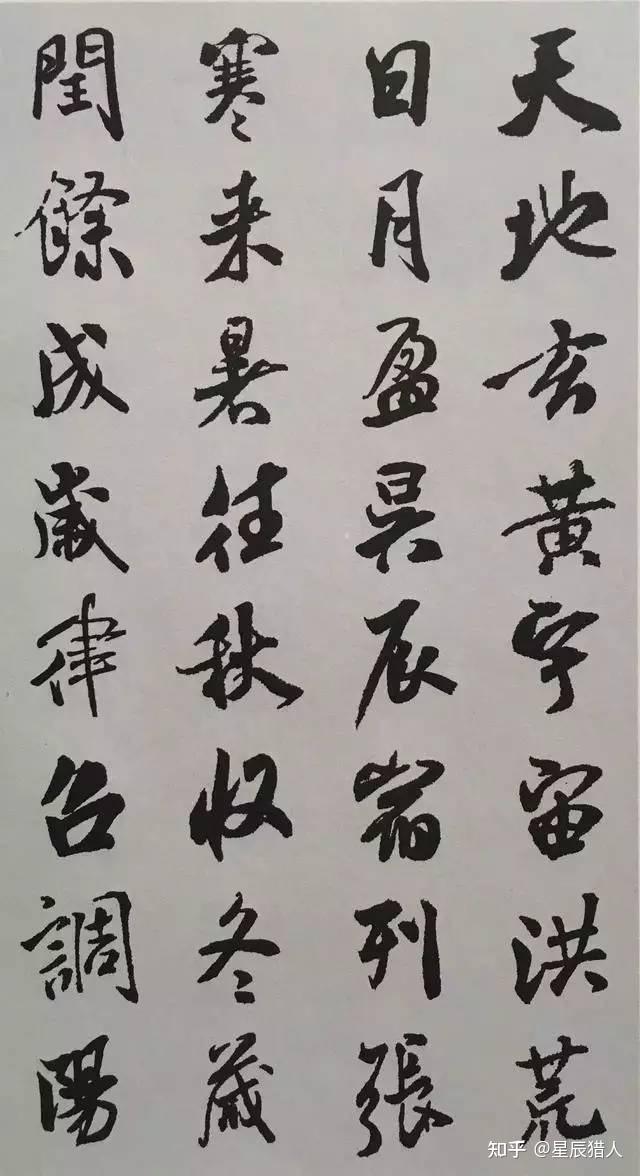 天地玄黄宇宙洪荒
日月盈昃辰宿列張
寒来暑往秋收冬藏
閏餘成歲律召調陽
知乎 @星辰猎人